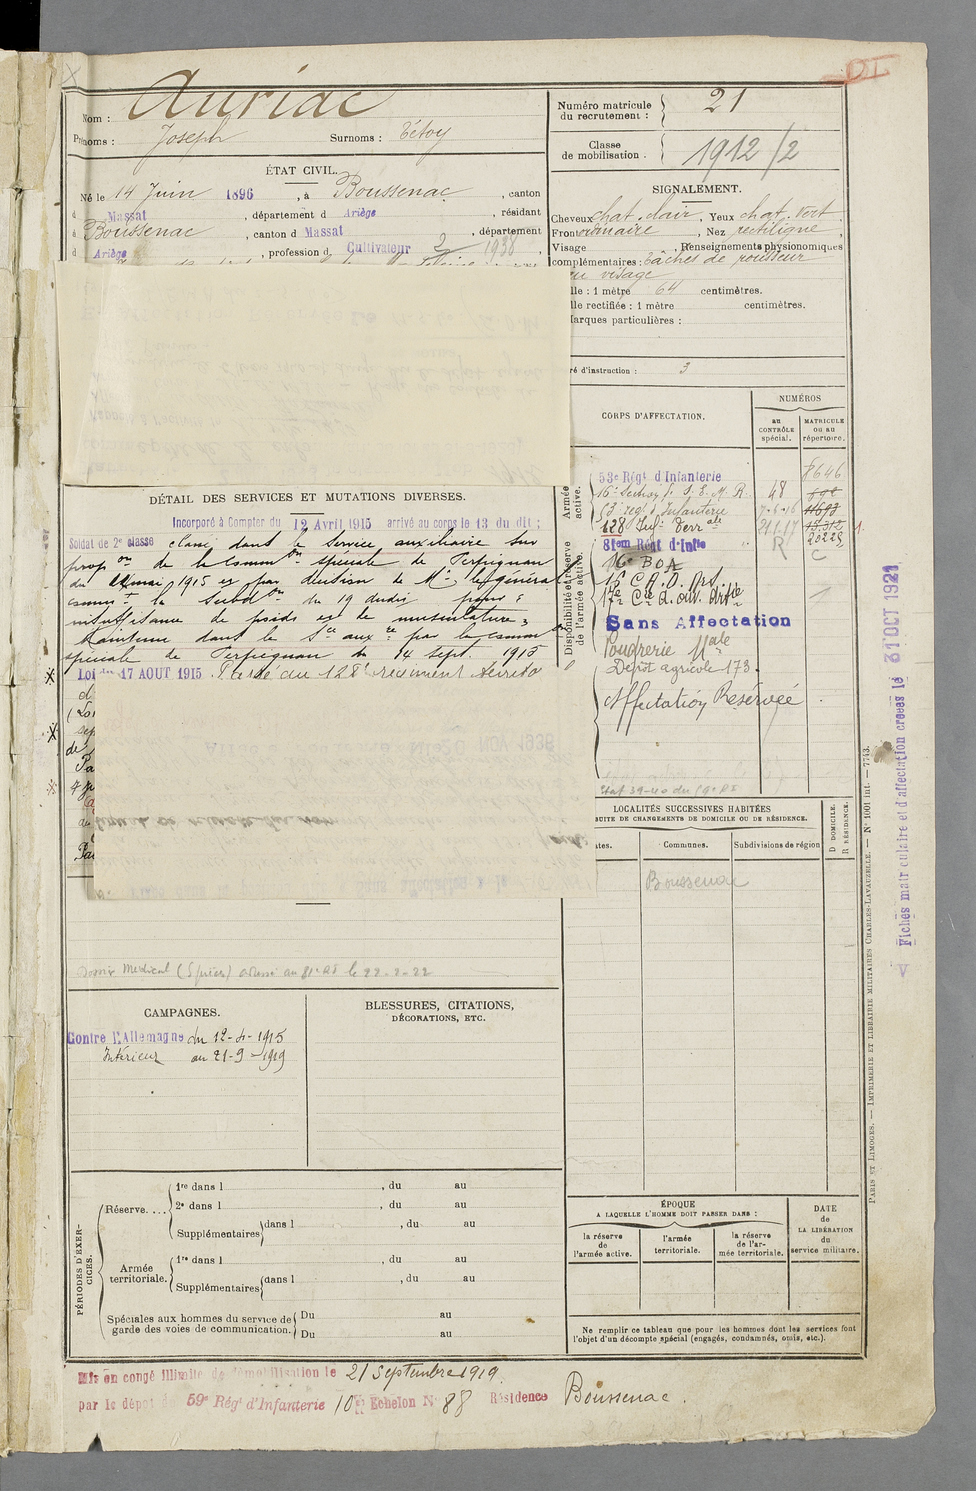 Nom : Auriac
Prénoms : Joseph Surnoms : Tétoy
ÉTAT CIVIL.
Né le 14 Juin 1896, à Boussenac, canton
d Massat, département d Ariège, résidant
à Boussenac, canton d Massat, département
d Ariège, profession d Cultivateur 2 1938
DÉTAIL DES SERVICES ET MUTATIONS DIVERSES.
Incorporé à Compter du 12 Avril 1915 arrivé au corps le 13 du dit ;
Soldat de 2e classe classé dans le service auxiliaire sur
propon de la Common spéciale de Perpignan
du mai 1915 et par décision de Mr le général
commt la Subdon du 19 dudit pour :
insuffisance de poids et de musculature ;
Maintenu dans le Sce auxre par la Common
spéciale de Perpignan du 14 Sept. 1915
Loi du 17 AOUT 1915. Passé au 128e régiment territo
Dossier Médical adressé au 81e RI le 22-2-22
CAMPAGNES.
Contre l'Allemagne du 12-4-1915
Intérieur au 21-9-1919
BLESSURES, CITATIONS,
DÉCORATIONS, ETC.
PÉRIODES D'EXER-
CICES.
Réserve....
1re dans l , du au
2e dans l , du au
Supplémentaires dans l , du au
Armée
territoriale.
1re dans l , du au
Supplémentaires dans l , du au
Spéciales aux hommes du service de
garde des voies de communication.
Du au
Du au
Mis en congé illimité de démobilisation le 21 Septembre 1919.
par le dépôt du 59e Régt d'Infanterie 10e Echelon N° 88 Résidence Boussenac.
DI
Numéro matricule
du recrutement :
21
Classe
de mobilisation.
1912/2
SIGNALEMENT.
Cheveux chat. clair, Yeux chat. vert
Front ordinaire, Nez rectiligne,
Visage , Renseignements physionomiques
complémentaires : tâches de rousseur
au visage
lle : 1 mètre 64 centimètres.
lle rectifiée : 1 mètre centimètres.
arques particulières :
ré d'instruction : 3
CORPS D'AFFECTATION.
NUMÉROS
au
CONTRÔLE
spécial.
MATRICULE
ou au
répertoire.
Armée
active.
53e Régt d'Infanterie
8646
16e Section f. S. E. M. R. 48
53e régt d'Infanterie 7-6-16 11693
128e Infie Terrale 21.1.17
20229
R
C
Disponibilité et réserve
de l'armée active.
81em Régt d'Infie
16e BOA
Sans Affectation
Poudrerie Nale
Dépôt agricole 173.
Affectation Réservée
LOCALITÉS SUCCESSIVES HABITÉES
SUITE DE CHANGEMENTS DE DOMICILE OU DE RÉSIDENCE.
ates. Communes. Subdivisions de région
D DOMICILE.
R RÉSIDENCE.
Boussenac
ÉPOQUE
A LAQUELLE L'HOMME DOIT PASSER DANS :
la réserve
de
l'armée active.
l'armée
territoriale.
la réserve
de l'ar-
mée territoriale.
DATE
de
LA LIBÉRATION
du
service militaire.
Ne remplir ce tableau que pour les hommes dont les services font
l'objet d'un décompte spécial (engagés, condamnés, omis, etc.).
PARIS ET LIMOGES. — IMPRIMERIE ET LIBRAIRIE MILITAIRES CHARLES-LAVAUZELLE. — N° 1001 int. — 7743.
V Fiches matriculaire et d'affectation créées le 31 OCT 1921